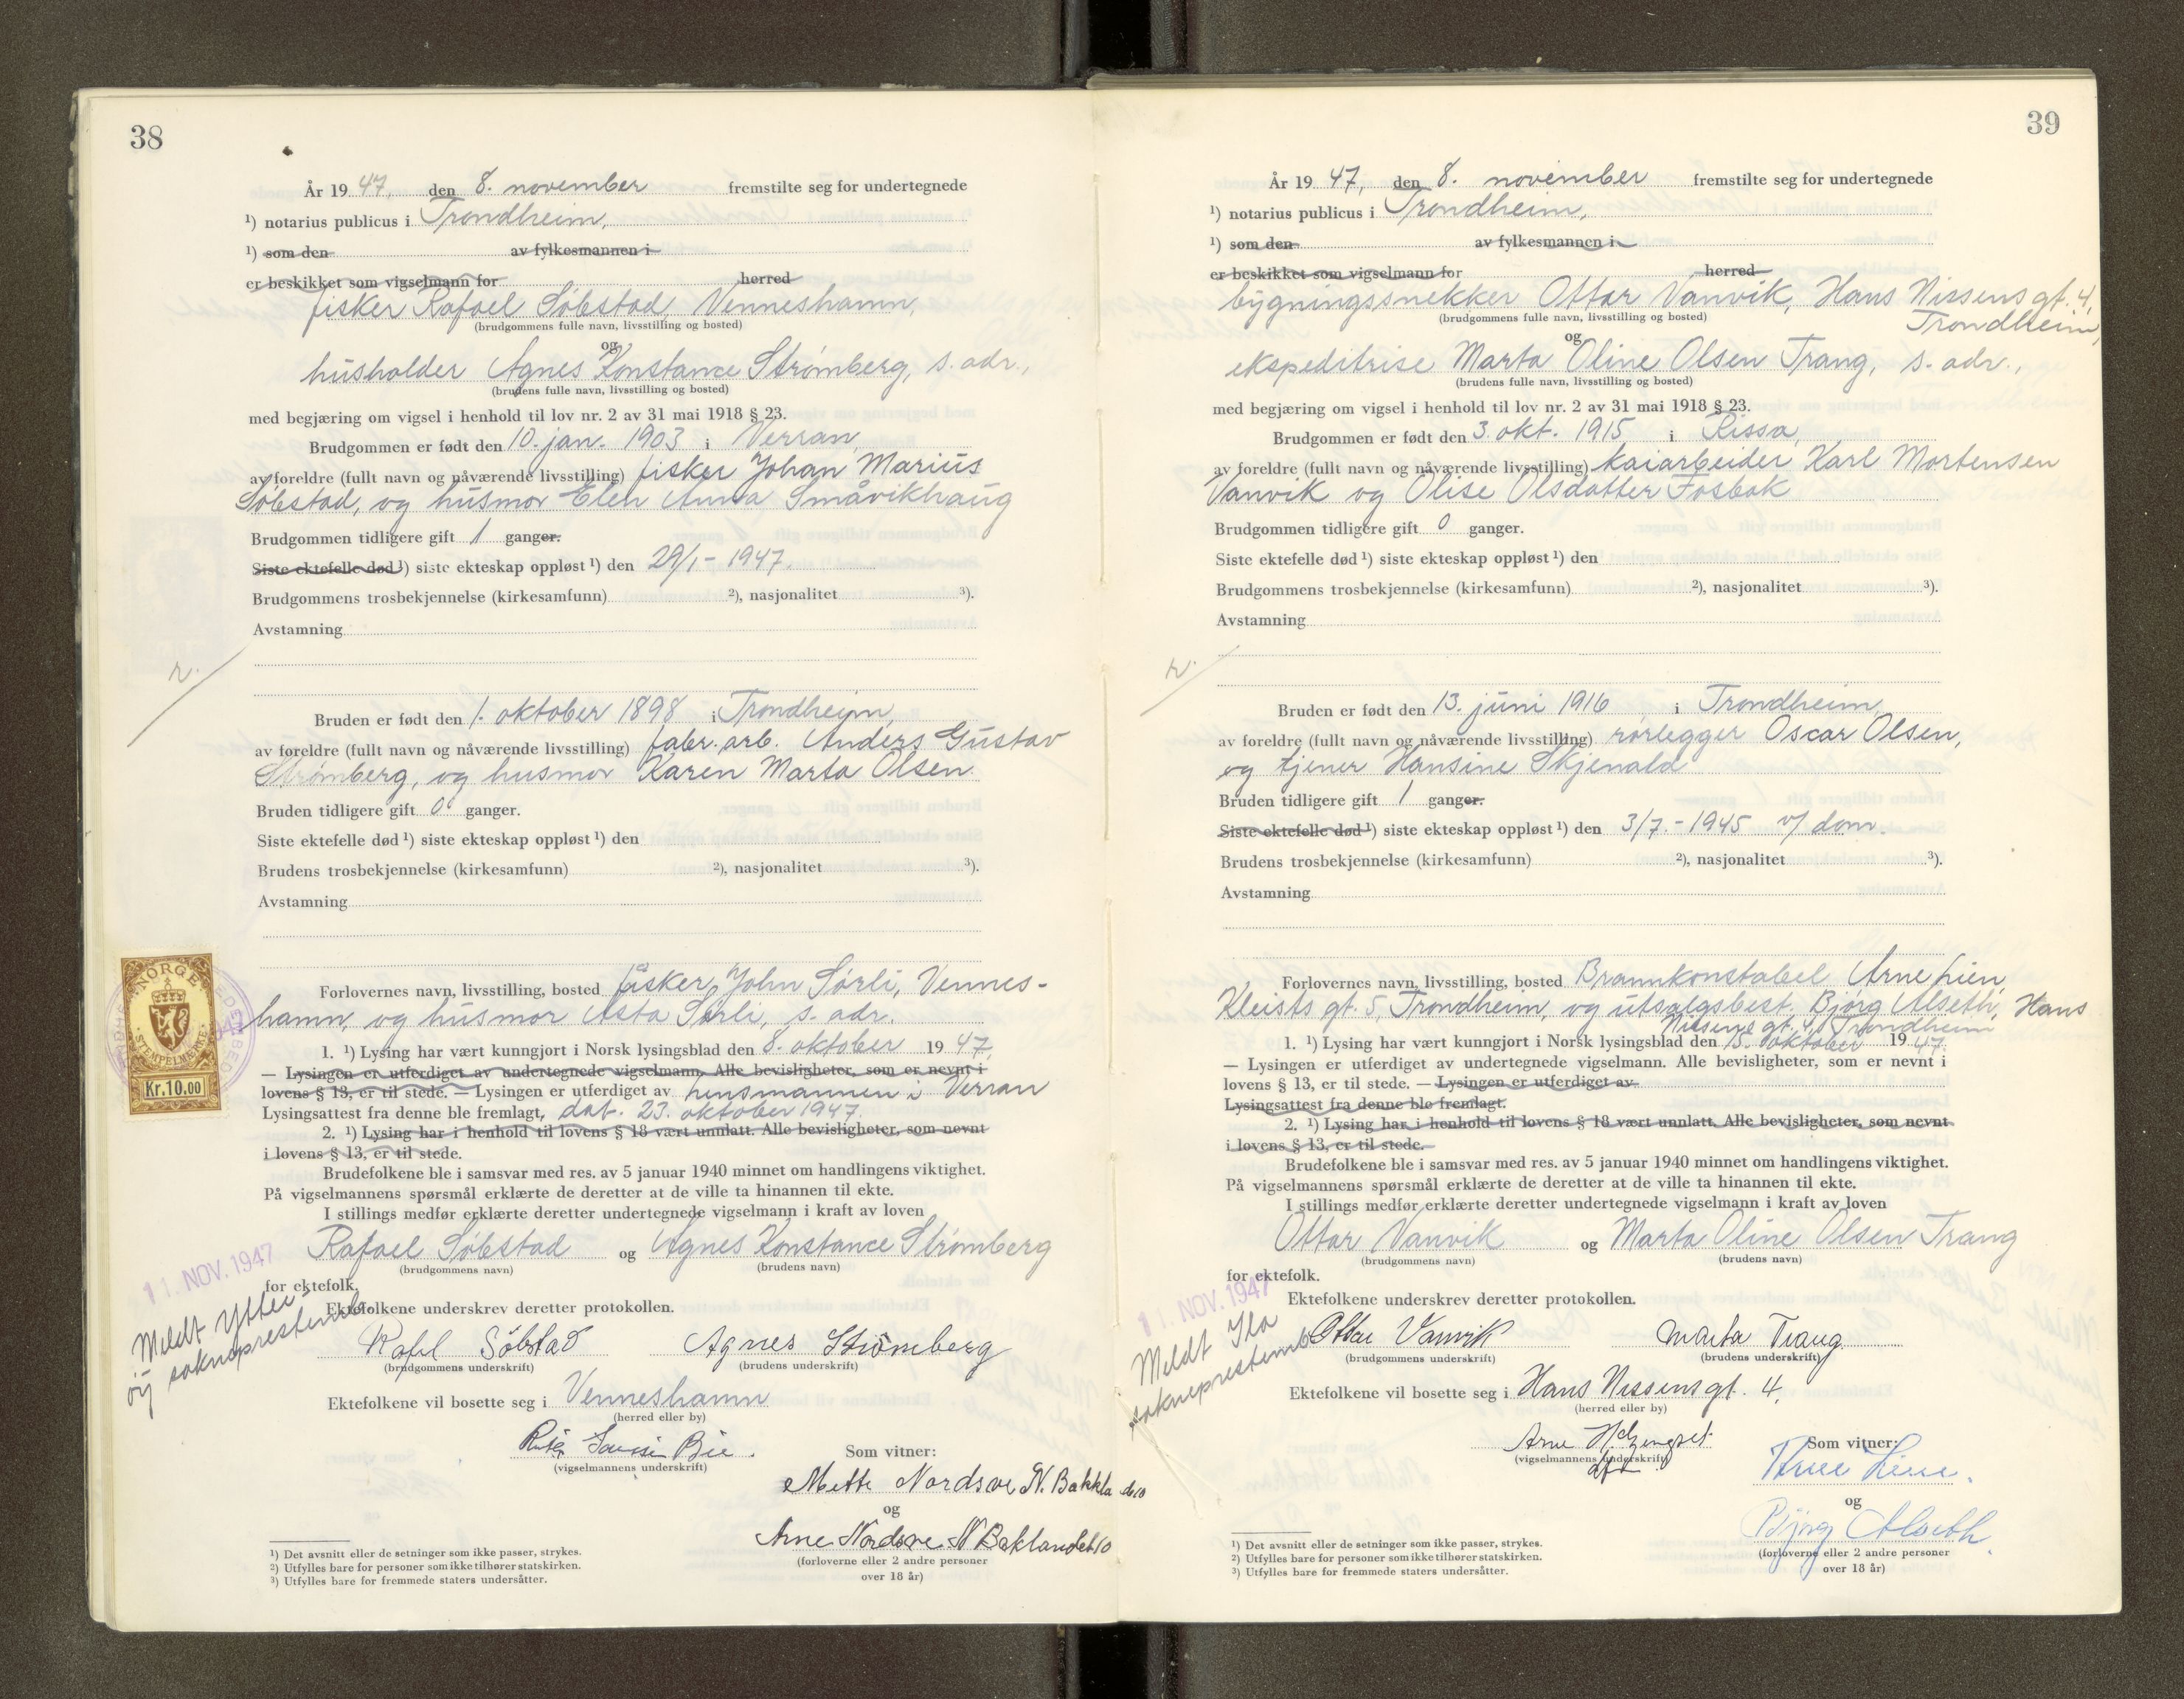 38
År 19 47, den 8. november fremstilte seg for undertegnede
¹) notarius publicus i Trondheim,
¹) som den av fylkesmannen i
er beskikket som vigselmann for herred
fisker Rafael Søbstad, Venneshamn,
(brudgommens fulle navn, livsstilling og bosted)
og
husholder Agnes Konstance Strømberg, s. adr.,
(brudens fulle navn, livsstilling og bosted)
med begjæring om vigsel i henhold til lov nr. 2 av 31 mai 1918 § 23.
Brudgommen er født den 10. jan. 1903 i Verran,
av foreldre (fullt navn og nåværende livsstilling) fisker Johan Marius
Søbstad, og husmor Elen Anna Småvikhaug
Brudgommen tidligere gift 1 ganger.
Siste ektefelle død ¹) siste ekteskap oppløst ¹) den 29/1 - 1947.
Brudgommens trosbekjennelse (kirkesamfunn) ²), nasjonalitet ³).
Avstamning
r.
Bruden er født den 1. oktober 1898 i Trondheim,
av foreldre (fullt navn og nåværende livsstilling) fabr. arb. Anders Gustav
Strømberg, og husmor Karen Marta Olsen
Bruden tidligere gift 0 ganger.
Siste ektefelle død ¹) siste ekteskap oppløst ¹) den
Brudens trosbekjennelse (kirkesamfunn) ²), nasjonalitet ³).
Avstamning
NORGE
STEMPELMERKE
Kr. 10.00
Forlovernes navn, livsstilling, bosted fisker John Sørli, Vennes-
hamn, og husmor Asta Sørli, s. adr.
1. ¹) Lysing har vært kunngjort i Norsk lysingsblad den 8. oktober 19 47.
— Lysingen er utferdiget av undertegnede vigselmann. Alle bevisligheter, som er nevnt i
lovens § 13, er til stede. — Lysingen er utferdiget av lensmannen i Verran
Lysingsattest fra denne ble fremlagt, dat. 23. oktober 1947.
2. ¹) Lysing har i henhold til lovens § 18 vært unnlatt. Alle bevisligheter, som nevnt
i lovens § 13, er til stede.
Brudefolkene ble i samsvar med res. av 5 januar 1940 minnet om handlingens viktighet.
På vigselmannens spørsmål erklærte de deretter at de ville ta hinannen til ekte.
I stillings medfør erklærte deretter undertegnede vigselmann i kraft av loven
Rafael Søbstad og Agnes Konstance Strømberg
(brudgommens navn) (brudens navn)
for ektefolk.
11. NOV. 1947
Meldt Ytter-
øy sokneprestemb.
Ektefolkene underskrev deretter protokollen.
Rafel Søbstad Agnes Strömberg
(brudgommens underskrift) (brudens underskrift)
Ektefolkene vil bosette seg i Venneshamn
(herred eller by)
(vigselmannens underskrift)
Som vitner:
Mette Nordsve N. Bakkla
og
Arne Nordsve N Baklandet 10
(forloverne eller 2 andre personer
over 18 år)
¹) Det avsnitt eller de setninger som ikke passer, strykes.
²) Utfylles bare for personer som ikke tilhører statskirken.
³) Utfylles bare for fremmede staters undersåtter.
39
År 19 47, den 8. november fremstilte seg for undertegnede
¹) notarius publicus i Trondheim,
¹) som den av fylkesmannen i
er beskikket som vigselmann for herred
bygningssnekker Ottar Vanvik, Hans Nissens gt. 4,
Trondheim,
(brudgommens fulle navn, livsstilling og bosted)
og
ekspeditrise Marta Oline Olsen Trang, s. adr.,
(brudens fulle navn, livsstilling og bosted)
med begjæring om vigsel i henhold til lov nr. 2 av 31 mai 1918 § 23.
Brudgommen er født den 3. okt. 1915 i Rissa,
av foreldre (fullt navn og nåværende livsstilling) kaiarbeider Karl Mortensen
Vanvik og Olise Olsdatter Fosbak
Brudgommen tidligere gift 0 ganger.
Siste ektefelle død ¹) siste ekteskap oppløst ¹) den
Brudgommens trosbekjennelse (kirkesamfunn) ²), nasjonalitet ³).
Avstamning
r.
Bruden er født den 13. juni 1916 i Trondheim,
av foreldre (fullt navn og nåværende livsstilling) rørlegger Oscar Olsen,
og tjener Hansine Skjenald
Bruden tidligere gift 1 ganger.
Siste ektefelle død ¹) siste ekteskap oppløst ¹) den 3/7. - 1945 v/ dom.
Brudens trosbekjennelse (kirkesamfunn) ²), nasjonalitet ³).
Avstamning
Forlovernes navn, livsstilling, bosted Brannkonstabel Arne Lien,
Kleists gt. 5, Trondheim, og utsalgsbest. Bjørg Alseth, Hans
Nissens gt. 4, Trondheim
1. ¹) Lysing har vært kunngjort i Norsk lysingsblad den 15. oktober 19 47.
— Lysingen er utferdiget av undertegnede vigselmann. Alle bevisligheter, som er nevnt i
lovens § 13, er til stede. — Lysingen er utferdiget av
Lysingsattest fra denne ble fremlagt.
2. ¹) Lysing har i henhold til lovens § 18 vært unnlatt. Alle bevisligheter, som nevnt
i lovens § 13, er til stede.
Brudefolkene ble i samsvar med res. av 5 januar 1940 minnet om handlingens viktighet.
På vigselmannens spørsmål erklærte de deretter at de ville ta hinannen til ekte.
I stillings medfør erklærte deretter undertegnede vigselmann i kraft av loven
Ottar Vanvik og Marta Oline Olsen Trang
(brudgommens navn) (brudens navn)
for ektefolk.
11. NOV. 1947
Meldt Ila
sokneprestemb.
Ektefolkene underskrev deretter protokollen.
Ottar Vanvik Marta Trang
(brudgommens underskrift) (brudens underskrift)
Ektefolkene vil bosette seg i Hans Nissens gt. 4.
(herred eller by)
Arne
(vigselmannens underskrift)
Som vitner:
Arne Lien.
og
Bjørg Alseth.
(forloverne eller 2 andre personer
over 18 år)
¹) Det avsnitt eller de setninger som ikke passer, strykes.
²) Utfylles bare for personer som ikke tilhører statskirken.
³) Utfylles bare for fremmede staters undersåtter.